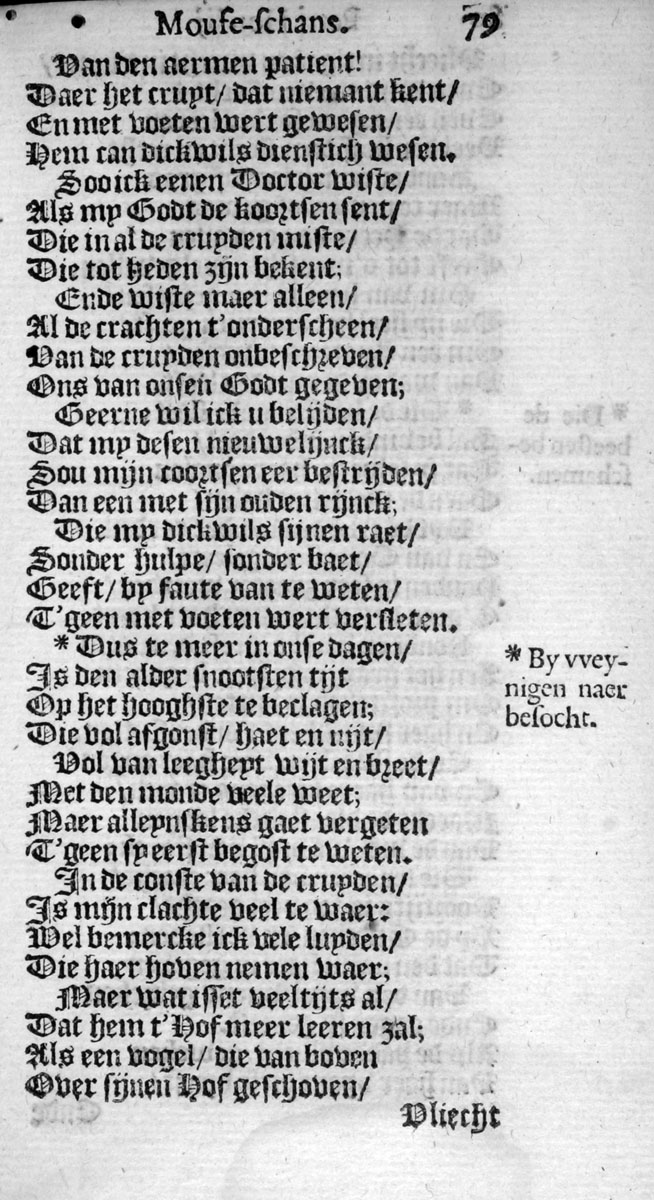 Mouse-schans. 79
Van den aermen patient!
Daer het cruyt/ dat niemant kent/
En met voeten wert gewesen/
Hem can dickwils dienstich wesen.
Soo ick eenen Doctor wiste/
Als my Godt de koortsen sent/
Die in al de cruyden miste/
Die tot heden zijn bekent;
Ende wiste maer alleen/
Al de crachten t'onderscheen/
Van de cruyden onbeschreven/
Ons van onsen Godt gegeven;
Geerne wil ick u belijden/
Dat my desen nieuwelijnck/
Sou mijn coortsen eer bestrijden/
Dan een met sijn ouden rijnck;
Die my dickwils sijnen raet/
Sonder hulpe/ sonder baet/
Geeft/ by faute van te weten/
T'geen met voeten wert versleten.
* Dus te meer in onse dagen/
Is den alder snootsten tijt
Op het hooghste te beclagen;
Die vol afgonst/ haet en nijt/
Vol van leegheyt wijt en breet/
Met den monde veele weet;
Maer alleynskens gaet vergeten
T'geen sy eerst begost te weten.
In de conste van de cruyden/
Is mijn clachte veel te waer:
Wel bemercke ick vele luyden/
Die haer hoven nemen waer;
Maer wat isset veeltijts al/
Dat hem t'Hof meer leeren zal;
Als een vogel/ die van boven
Over sijnen Hof geschoven/
Vliecht
* By vvey-
nigen naer
besocht.